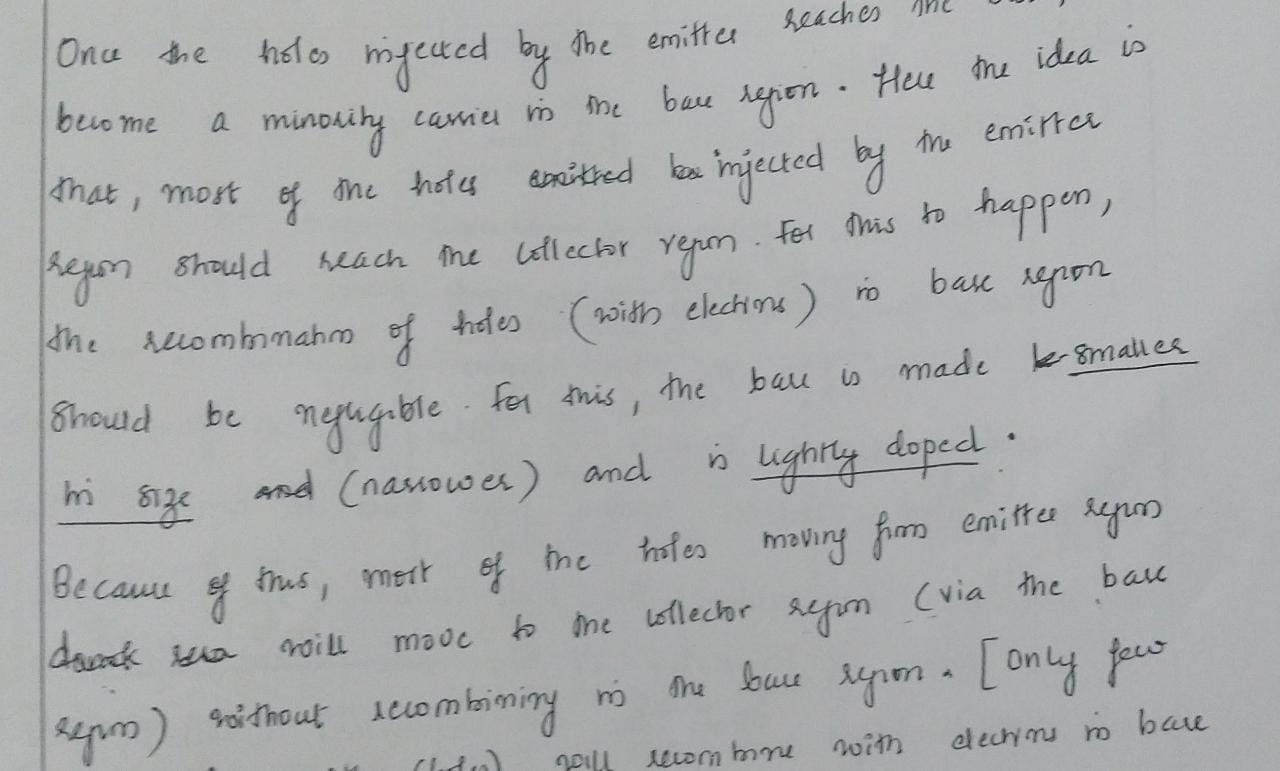 Once the holes injected by the emitter reaches the
become a minority carrier in the base region. Here the idea is
that, most of the holes emitted injected by the emitter
region should reach the collector region. For this to happen,
the recombination of holes (with electrons) in base region
should be negligible. For this, the base is made smaller
in size and (narrower) and is lightly doped.
Because of this, most of the holes moving from emitter region
will move to the collector region (via the base
region) without recombining in the base region. [Only few
(holes) will recombine with electrons in base